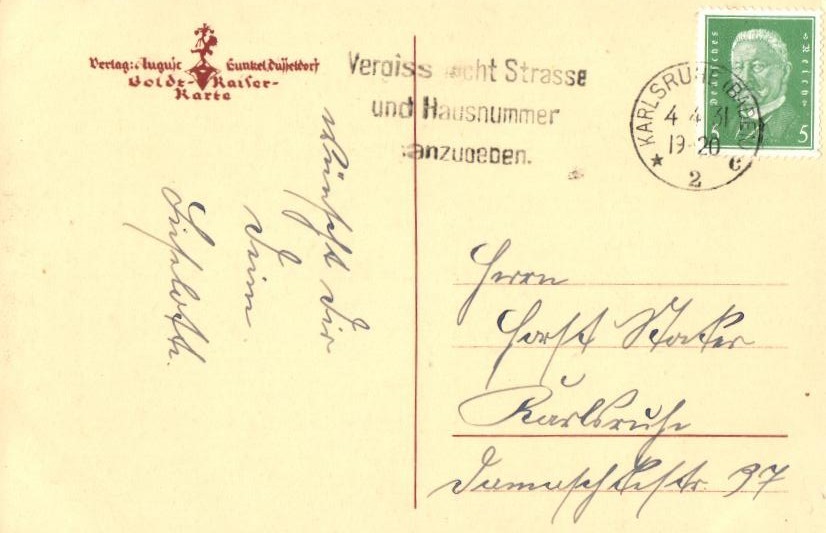 Verlag: August Gunkel, Düsseldorf
Goldt-Kaiser-
Karte
Vergiss nicht Strasse
und Hausnummer
anzugeben.
KARLSRUHE (BADEN)
4 4 31
19-20
* 2 c
Deutsches Reich
5 5
wünscht Dir
Deine
Liselotte.
Herrn
Horst
Karlsruhe
37